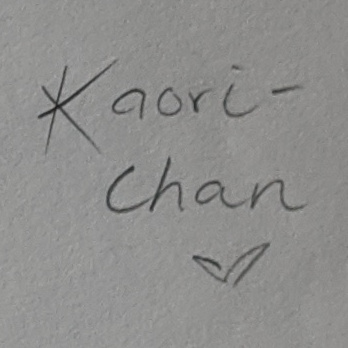 Kaori-
Chan